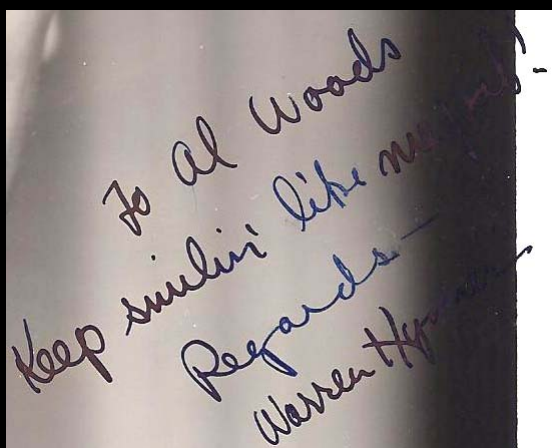 To Al Woods
Keep smilin' like
Regards —
Warren